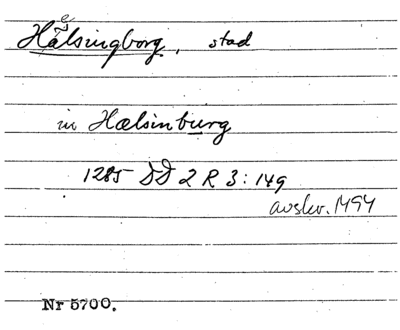 Hälsingborg, stad
in Hælsinburg
1285 DD 2 R 3: 149
avskr. 1494
Nr 5700.